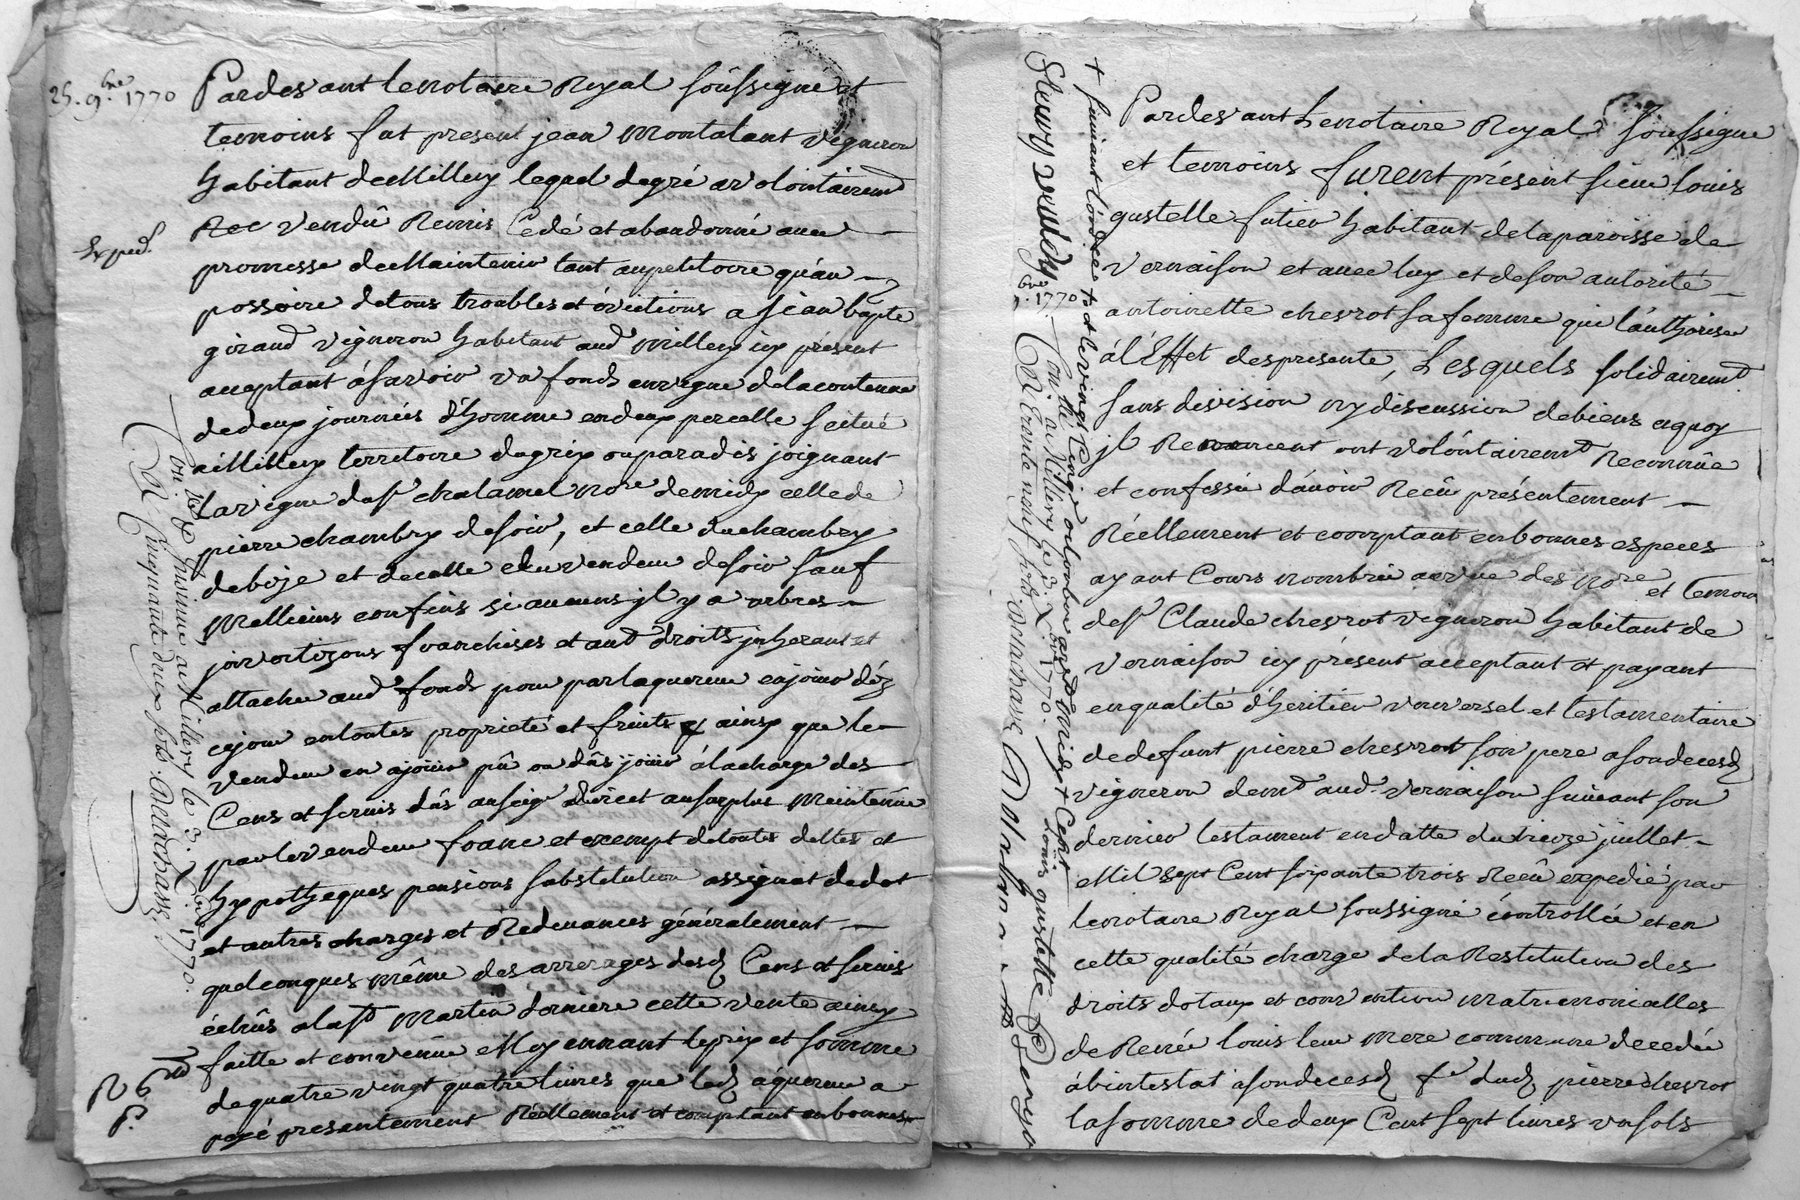 25. 9.bre 1770
Pardevant le notaire Royal soussigné et
temoins fut present jean Montalant vigneron
habitant de Millery lequel de gré a volontairemt
vendû Remis Cedé et abandonné avec
Exped.
promesse de Maintenir tant au petitoire qu'au
possoire de tous troubles et évictions a jean bapte
giraud vigneron habitant aud millery icy présent
acceptant ásavoir un fonds en vigne de la contenue
de deux journées d'homme en deux percelle scitué
a Millery territoire du grix ou paradis joignant
la vigne du sr chalamel nore de midy celle de
pierre chambry de soir, et celle du chambry
de bize et de celle du vendeur de soir sauf
Meilleurs confins si aucuns jl y a arbres
franchises et aud droits jnherant et
attaché aud fonds pour par laquereur en jouir déz
cejour en toutes proprieté et fruits ainsy que le
vendeur en a joui pû ou dûs joüir á la charge des
Cens et servis dûs au seigr direct au surplus Maintenüe
par le vendeur franc et exempt de toutes dettes et
hypotheques pensions substitution assignat de dot
et autres charges et Redevances généralement
quelconques même des arrerages desd Cens et servis
échûs a la st Martin derniere cette vente ainsy
faitte et convenüe Moyennant le prix et somme
de quatre vingt quatre livres que led aquereur a
payé presentement Réellement et comptant en bonnes
Con. à Millery le 3. Xbre 1770.
R Cinquante deux sols
R 6
Pardevant Le notaire Royal soussigné
et temoins furent présent sieur louis
gustelle futier habitant de la paroisse de
vernaison et avec luy et de son autorité
antoinette chevrot sa femme qui l'authorise
á l'Effet des presente, Lesquels solidairemt
sans division ny discussion de biens a quoy
jl Renoncent ont volóntairemt Reconnüe
et confessée d'avoir Reçu présentement
Réellement et comptant en bonnes especes
ayant Cours nombrée a vüe des nore et temoin
de sr Claude chevrot vigneron habitant de
vernaison icy présent acceptant et payant
en qualité d'heritier universel et testamentaire
de defunt pierre chevrot son pere a son deces
vigneron demt aud. vernaison suivant son
dernier testament en datte du treize juillet
Mil sept Cent soixante trois Reçû expedié par
le notaire Royal soussigné controllée et en
cette qualité chargé de la Restitution des
droits dotaux et convention matrimonialles
de Renée louis leur mere commune decedée
ábintestat a son deces fe dud pierre chevrot
la somme de deux Cent sept livres un sols
louis gustelle
Con. à Millery le 3. Xbre 1770.
R trante neuf sols